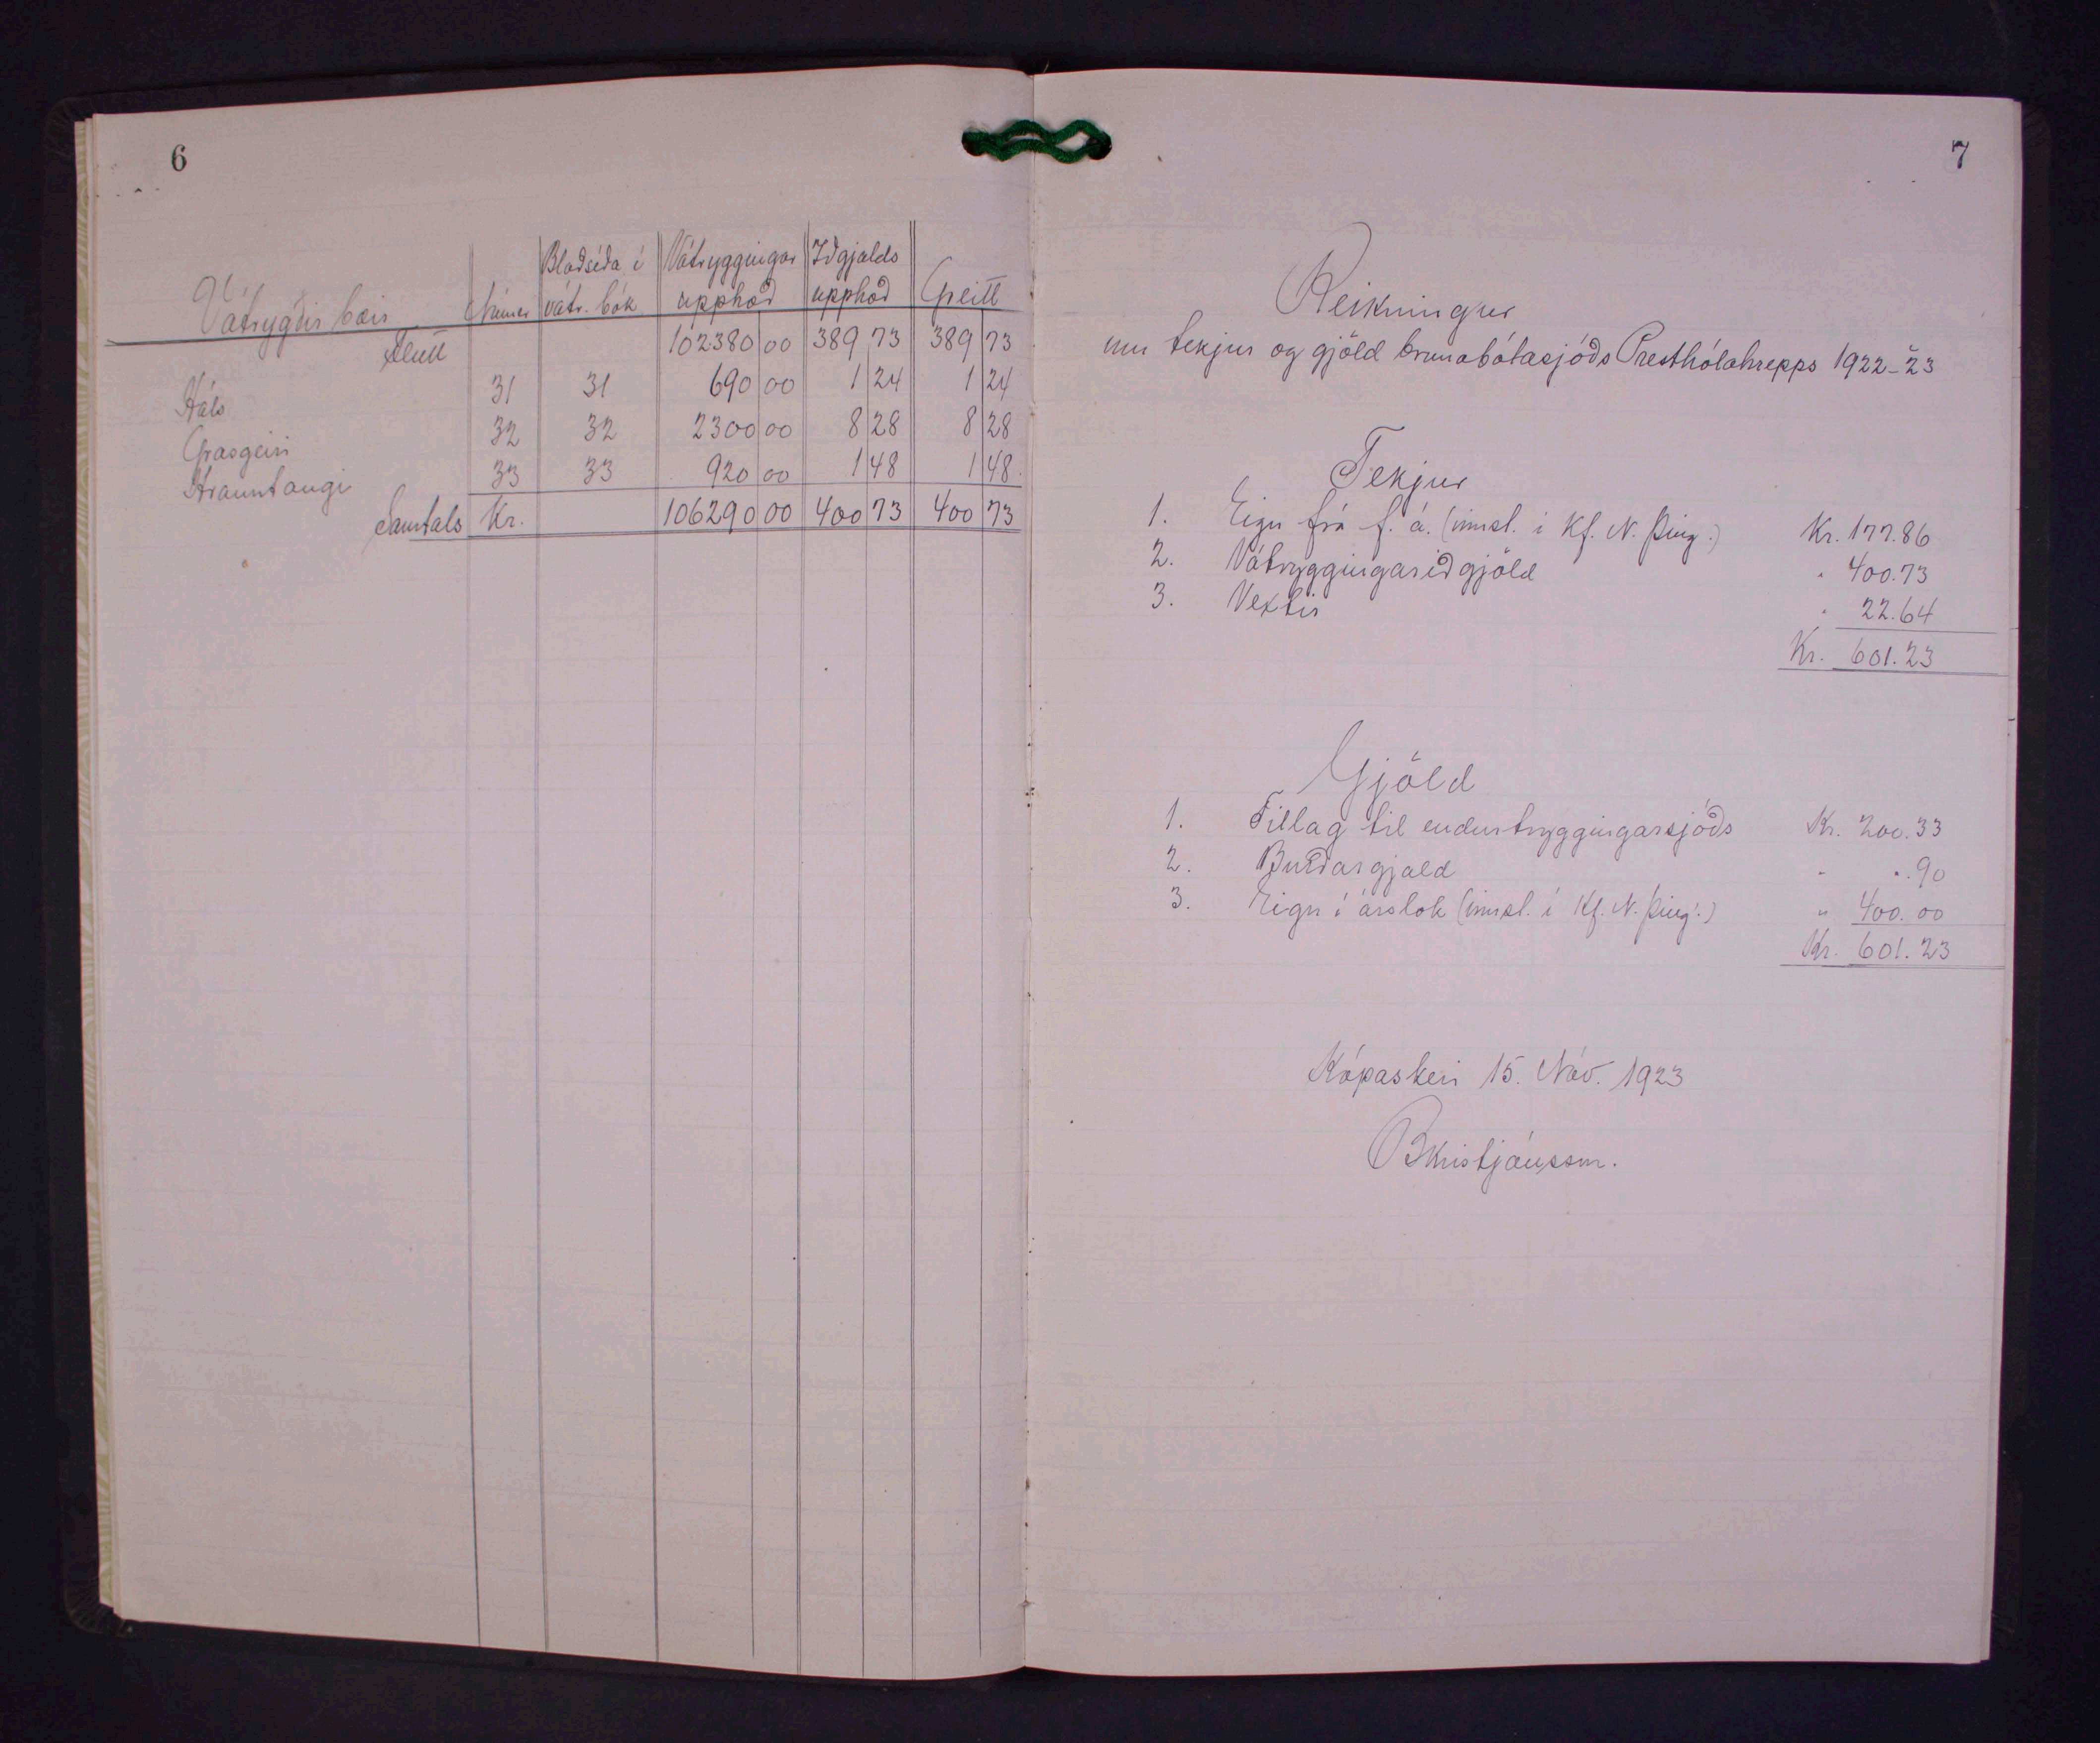 6
Vátrygðir bæir Númer Blaðsíða í vátr. bók Vátryggingar upphæð Iðgjalds upphæð Greitt
Flutt 102380 00 389 73 389 73
Háls 31 31 690 00 1 24 1 24
Grasgeiri 32 32 2300 00 8 28 8 28
Hrauntangi 33 33 920 00 1 48 1 48
Samtals Kr. 106290 00 400 73 400 73
7
Reikningur
um tekjur og gjöld brunabótasjóðs Presthólahrepps 1922-23
Tekjur
1. Eign frá f. á. (innst. í Kf. N. Þing.) Kr. 177.86
2. Vátryggingariðgjöld " 400.73
3. Vextir " 22.64
Kr. 601.23
Gjöld
1. Tillag til endurtryggingarsjóðs Kr. 200.33
2. Burðargjald " ".90
3. Eign í árslok (innst. í Kf. N. Þing.) " 400.00
Kr. 601.23
Kópaskeri 15. Nóv. 1923
BKristjánsson.